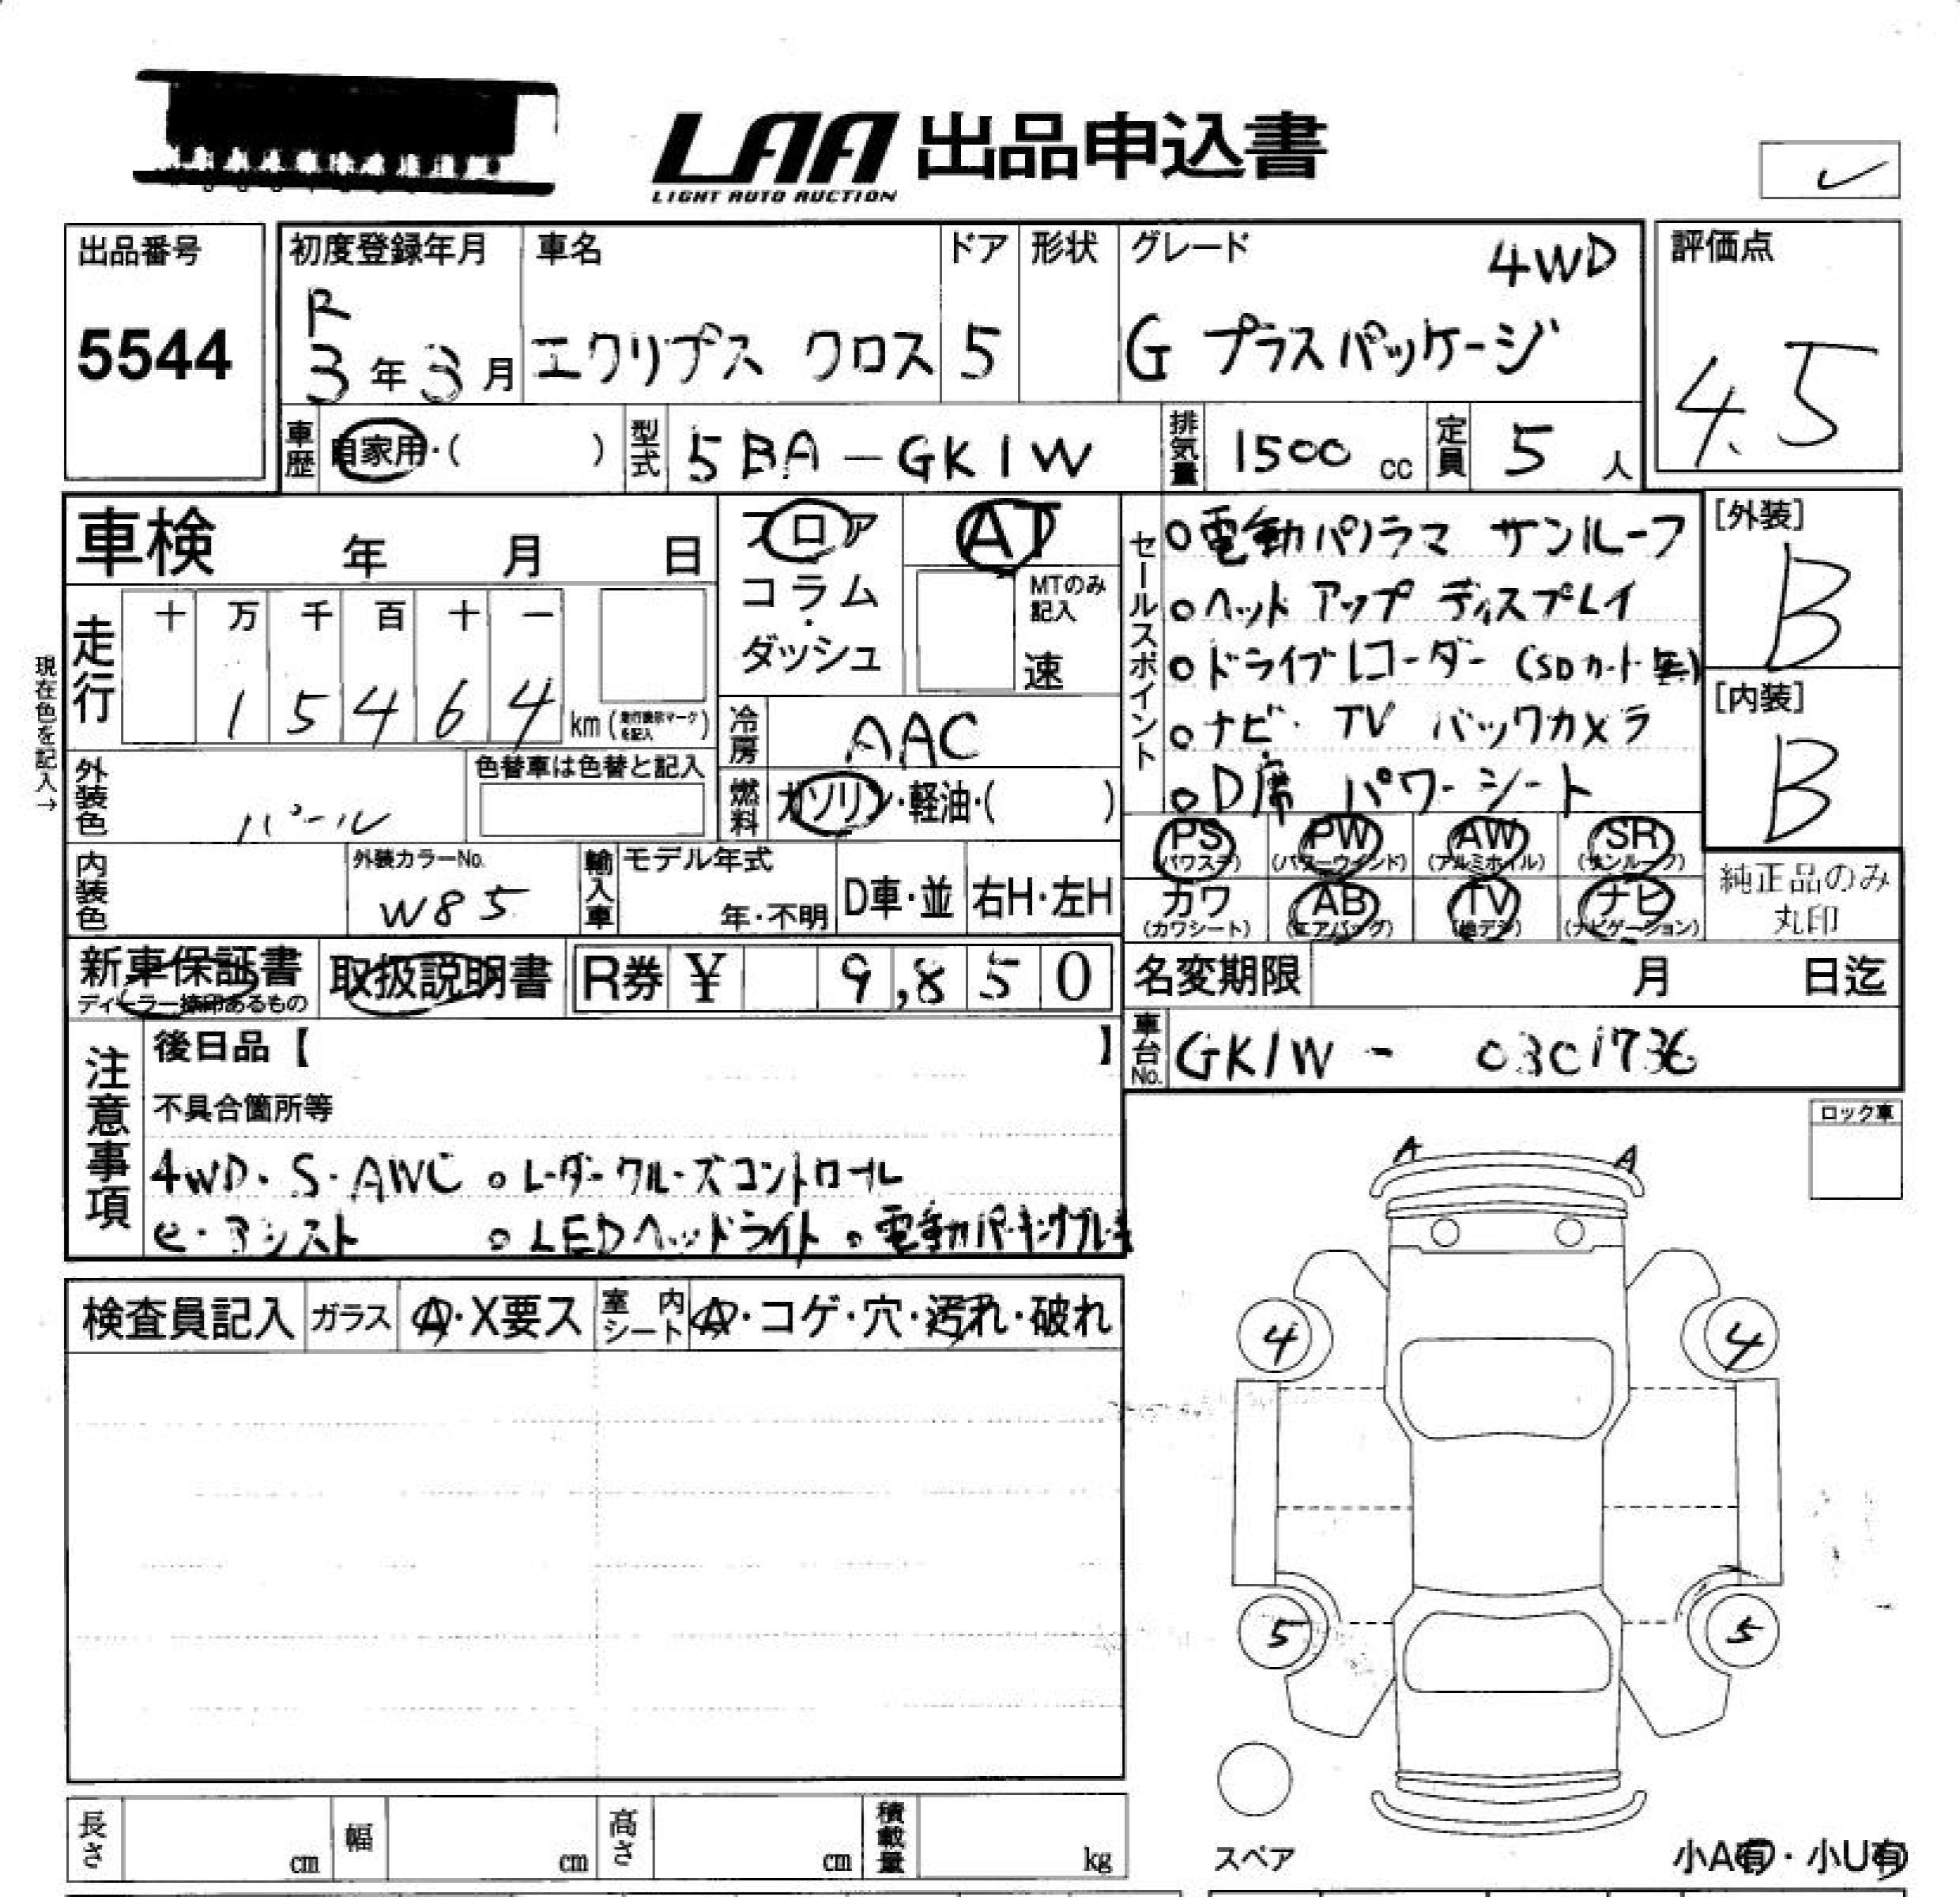 LAA 出品申込書
LIGHT AUTO AUCTION
出品番号
5544
初度登録年月
R
3年3月
車名
エクリプス クロス
ドア
5
形状
グレード
4WD
G プラスパッケージ
評価点
4.5
車歴
自家用・( )
型式
5BA-GK1W
排気量
1500 cc
定員
5 人
車検 年 月 日
フロア
コラム
・
ダッシュ
AT
MTのみ
記入
速
セールスポイント
○電動パノラマ サンルーフ
○ヘッド アップ ディスプレイ
○ドライブレコーダー (SDカード無)
○ナビ・TV バックカメラ
○D席 パワーシート
[外装]
B
[内装]
B
現在色を記入→
走行
十 万 千 百 十 一
1 5 4 6 4 km (走行表示マークを記入)
冷房
AAC
外装色
パール
色替車は色替と記入
燃料
ガソリン・軽油・( )
PS (パワステ)
PW (パワーウインド)
AW (アルミホイル)
SR (サンルーフ)
カワ (カワシート)
AB (エアバッグ)
TV (地デジ)
ナビ (ナビゲーション)
純正品のみ
丸印
内装色
外装カラーNo.
W85
輸入車
モデル年式
年・不明
D車・並
右H・左H
新車保証書
ディーラー捺印あるもの
取扱説明書
R券 ¥ 9,850
名変期限 月 日迄
車台No.
GK1W -
注意事項
後日品【 】
不具合箇所等
4WD・S-AWC ○レーダークルーズコントロール
e・アシスト ○LEDヘッドライト ○電動パーキングブレーキ
ロック車
A A
検査員記入
ガラス
A・X要ス
室内シート
A・コゲ・穴・汚れ・破れ
4 4
5 5
長さ cm
幅 cm
高さ cm
積載量 kg
スペア
小A有・小U有